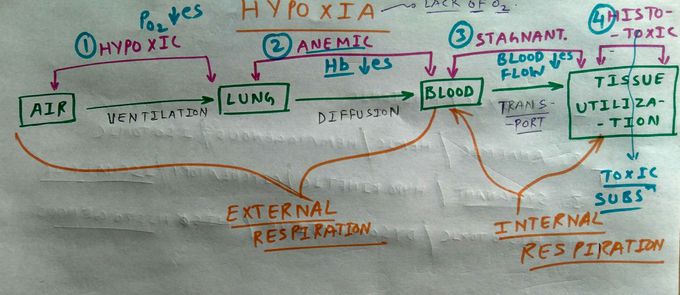 HYPOXIA
LACK OF O₂.
PO₂ ↓es
① HYPOXIC
② ANEMIC
Hb ↓es
③ STAGNANT.
BLOOD ↓es
FLOW
④ HISTO-
-TOXIC
AIR
VENTILATION
LUNG
DIFFUSION
BLOOD
TRANS-
-PORT
TISSUE
UTILIZA-
-TION
TOXIC
SUBS
EXTERNAL
RESPIRATION
INTERNAL
RESPIRATION